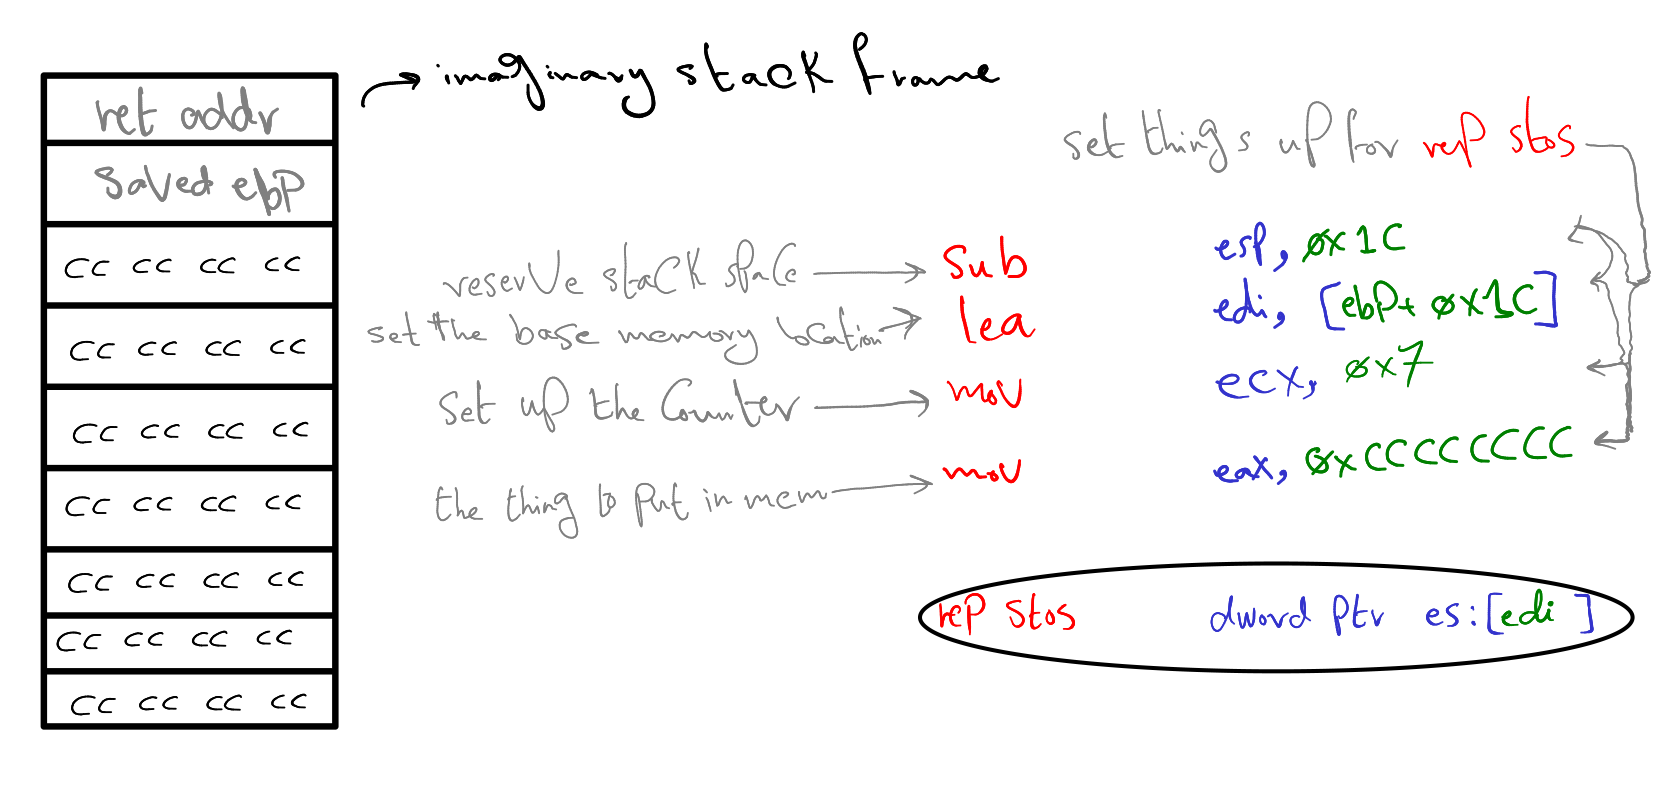 imaginary stack frame
ret addr
saved ebp
cc cc cc cc
cc cc cc cc
cc cc cc cc
cc cc cc cc
cc cc cc cc
cc cc cc cc
cc cc cc cc
set things up for rep stos
reserve stack space sub esp, 0x1C
set the base memory location lea edi, [ebp+ 0x1C]
set up the counter mov ecx, 0x7
the thing to put in mem mov eax, 0xCCCCCCCC
rep stos dword ptr es:[edi ]